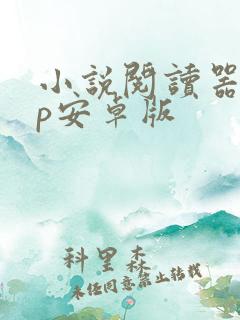 小說閱讀器
p安卓版
科里森
未經同意禁止轉載